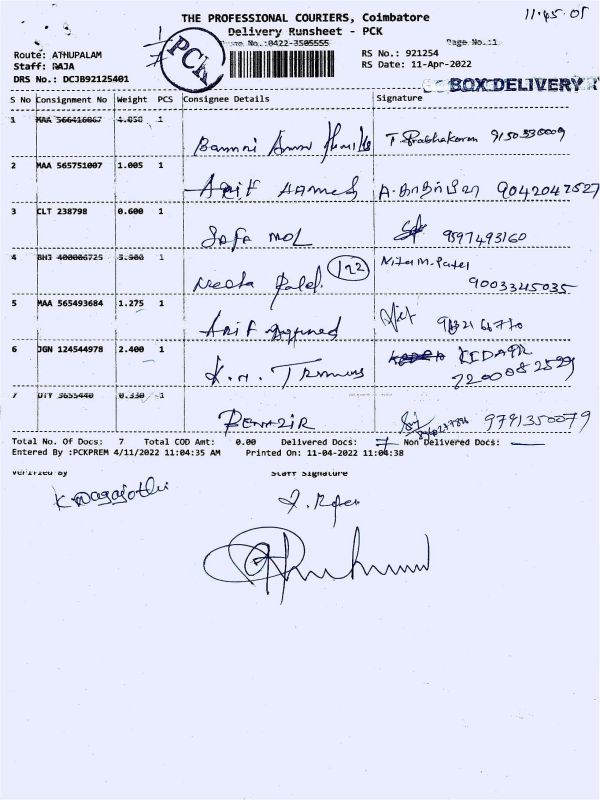 THE PROFESSIONAL COURIERS, Coimbatore
11.45.05
Delivery Runsheet - PCK
PCK
Phone No.:0422-3505555
Page No.:1
Route: ATHUPALAM
RS No.: 921254
Staff: RAJA
RS Date: 11-Apr-2022
DRS No.: DCJB92125401
BOX DELIVERY
S No Consignment No Weight PCS Consignee Details Signature
1 MAA 566416867 4.050 1
T. Prabhakaran 9150330009
2 MAA 565751007 1.005 1
Arif Ahmed 9042047527
3 CLT 238798 0.600 1
Safa mol 9597493160
4 400006725 3.900 1
Neeta Patel 122 Nita M. Patel
9003345035
5 MAA 565493684 1.275 1
Arif
6 JGN 124544978 2.400 1
K.N. KEDAR
7200082599
7 UTY 3655440 0.330 1
BENAZIR 9791350079
Total No. Of Docs: 7 Total COD Amt: 0.00 Delivered Docs: 7 Non Delivered Docs: —
Entered By :PCKPREM 4/11/2022 11:04:35 AM Printed On: 11-04-2022 11:04:38
Verified By Staff Signature
K. Nagajothi